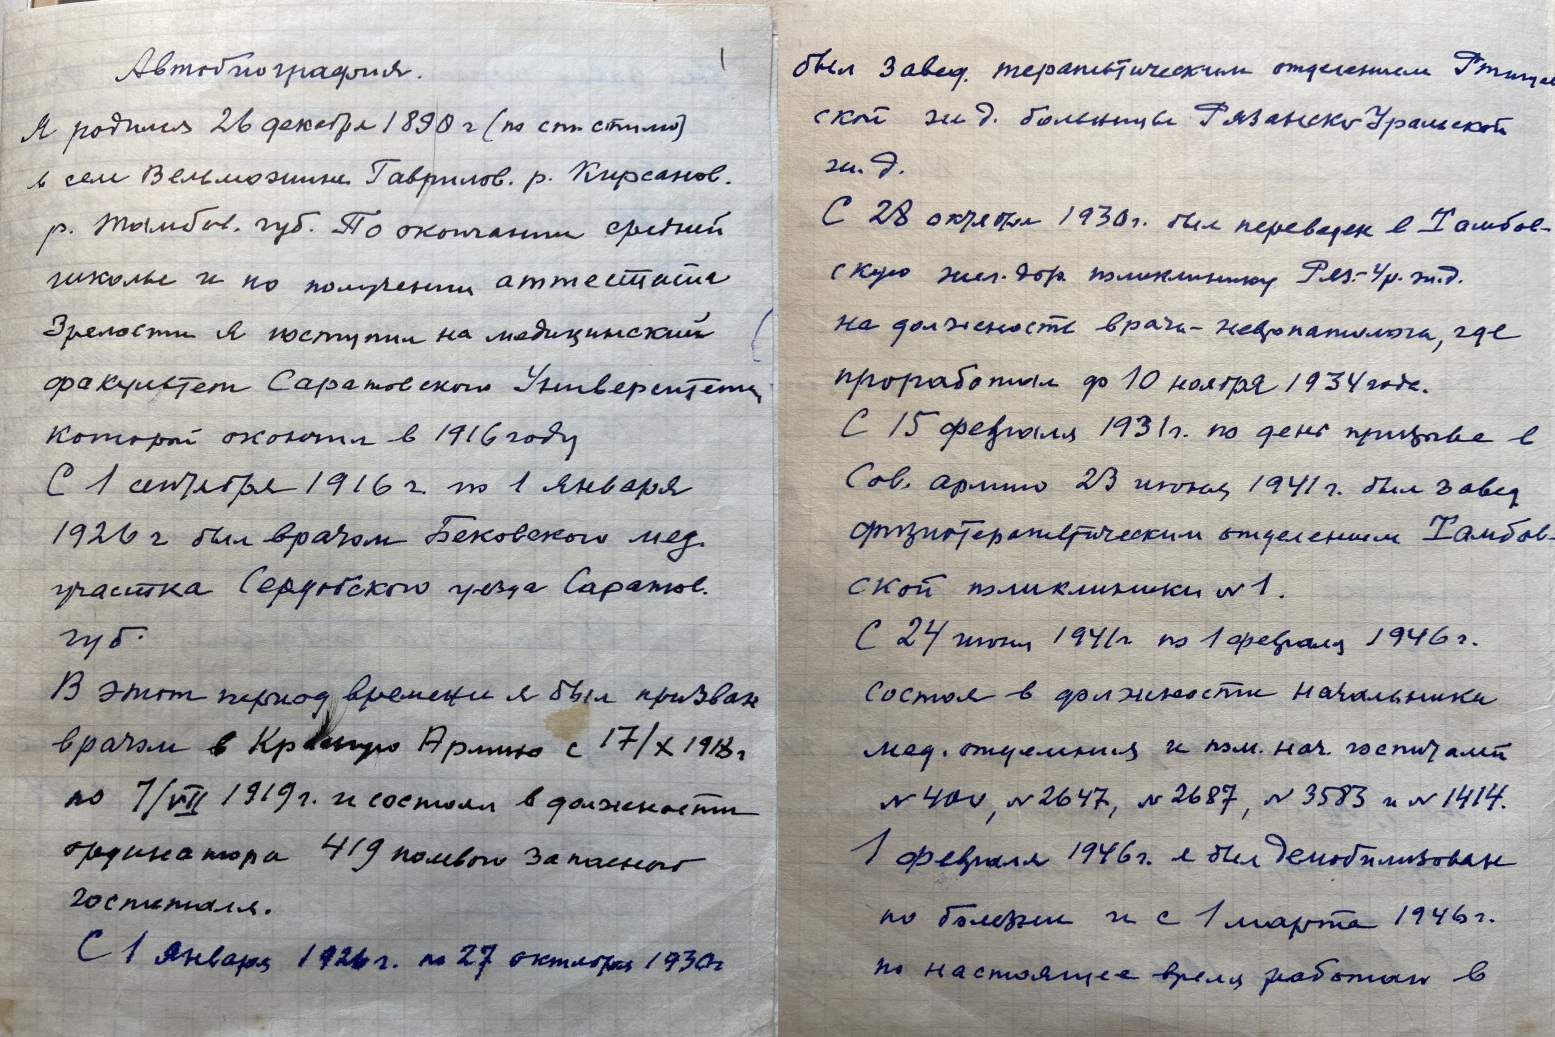 Автобиография.
1
Я родился 26 декабря 1890 г (по ст. стилю)
в селе Вельможине Гаврилов. р. Кирсанов.
р. Тамбов. губ. По окончании средней
школы и по получении аттестата
зрелости я поступил на медицинский
факультет Саратовского Университета,
который окончил в 1916 году
С 1 сентября 1916 г. по 1 января
1926 г был врачом Бековского мед.
участка Сердобского уезда Саратов.
губ.
В этот период времени я был призван
врачом в Красную Армию с 17/X 1918 г
по 7/VII 1919 г. и состоял в должности
ординатора 419 полевого запасного
госпиталя.
С 1 января 1926 г. по 27 октября 1930 г
был завед. терапевтическим отделением Ртищев
ской ж. д. больницы Рязанско-Уральской
ж. д.
С 28 октября 1930 г. был переведен в Тамбов-
скую жел. дор. поликлинику Ряз.-Ур. ж.д.
на должность врача-невропатолога, где
проработал до 10 ноября 1934 года.
С 15 февраля 1931 г. по день призыва в
Сов. армию 23 июня 1941 г. был завед
физиотерапевтическим отделением Тамбов-
ской поликлиники № 1.
С 24 июня 1941 г по 1 февраля 1946 г.
состоял в должности начальника
мед. отделения и пом. нач. госпиталей
№ 2647, № 2687, № 3583 и № 1414.
1 февраля 1946 г. я был демобилизован
по болезни и с 1 марта 1946 г.
по настоящее время работаю в